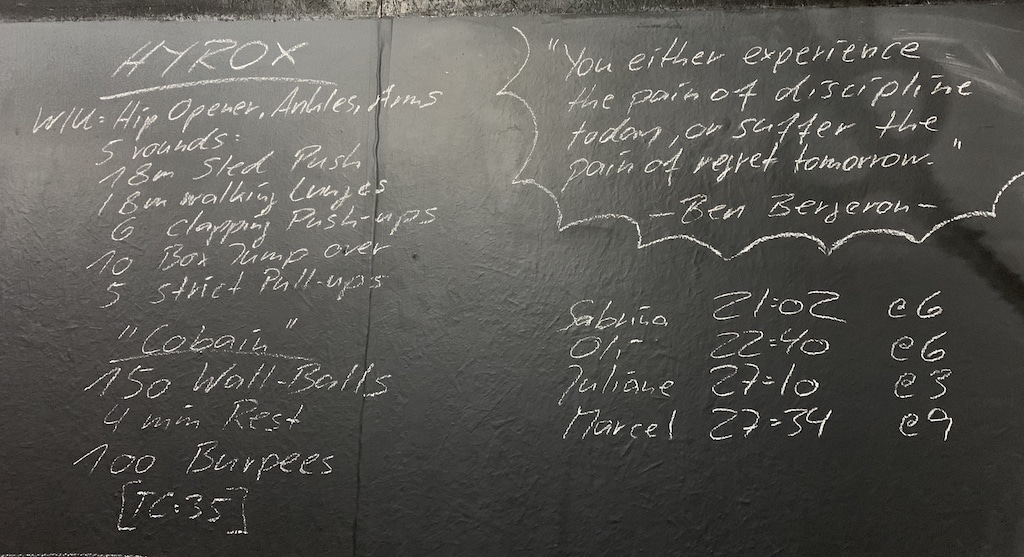 HYROX
W/U: Hip Opener, Ankles, Arms
5 rounds:
18m Sled Push
18m walking Lunges
6 clapping Push-ups
10 Box Jump over
5 strict Pull-ups
"Cobain"
150 Wall-Balls
4 min Rest
100 Burpees
[TC:35]
"You either experience
the pain of discipline
today, or suffer the
pain of regret tomorrow."
- Ben Bergeron -
Sabrina 21:02 @6
Oli 22:40 @6
Juliane 27:10 @3
Marcel 27:34 @9